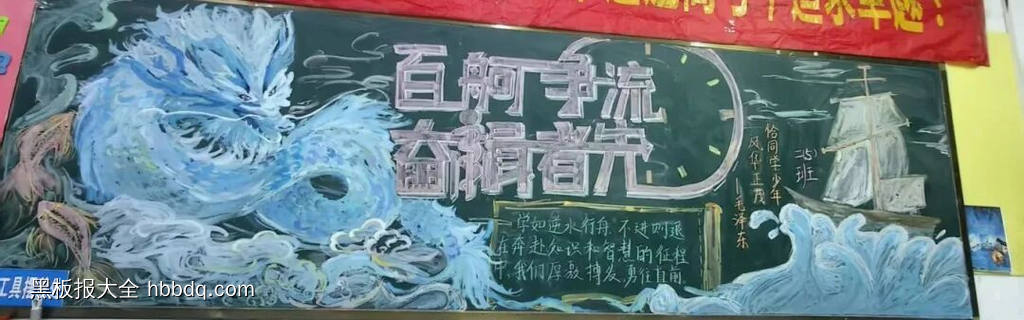 追求卓越！
百舸争流
奋楫者先
恰同学少年
风华正茂
—毛泽东
二(5)
班
学如逆水行舟,不进则退
在奔赴知识和智慧的征程
中,我们厚积博发,勇往直前
工具
黑板报大全 hbbdq.com